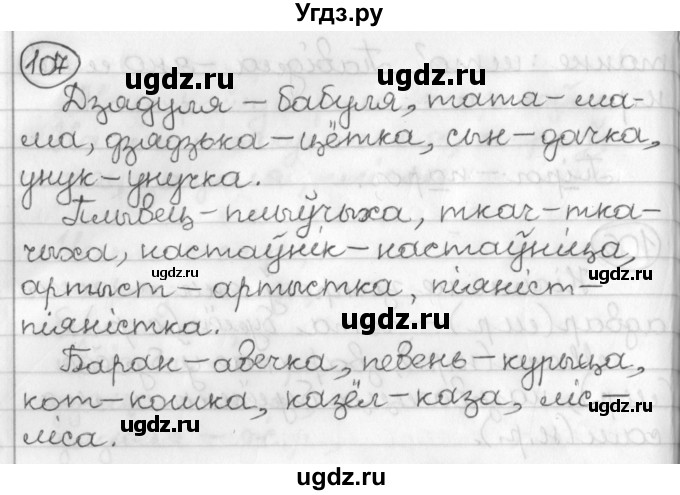 Угдз.ру
107
Дзядуля – бабуля, тата – ма-
ма, дзядзька – цётка, сын – дачка,
унук – унучка.
Плывец – плыўчыха, ткач – тка-
чыха, настаўнік – настаўніца,
артыст – артыстка, піяніст –
піяністка.
Баран – авечка, певень – курыца,
кот – кошка, казёл – каза, ліс –
ліса.
ugdz.ru
ugdz.ru
ugdz.ru
ugdz.ru
ugdz.ru
ugdz.ru
ugdz.ru
ugdz.ru
ugdz.ru